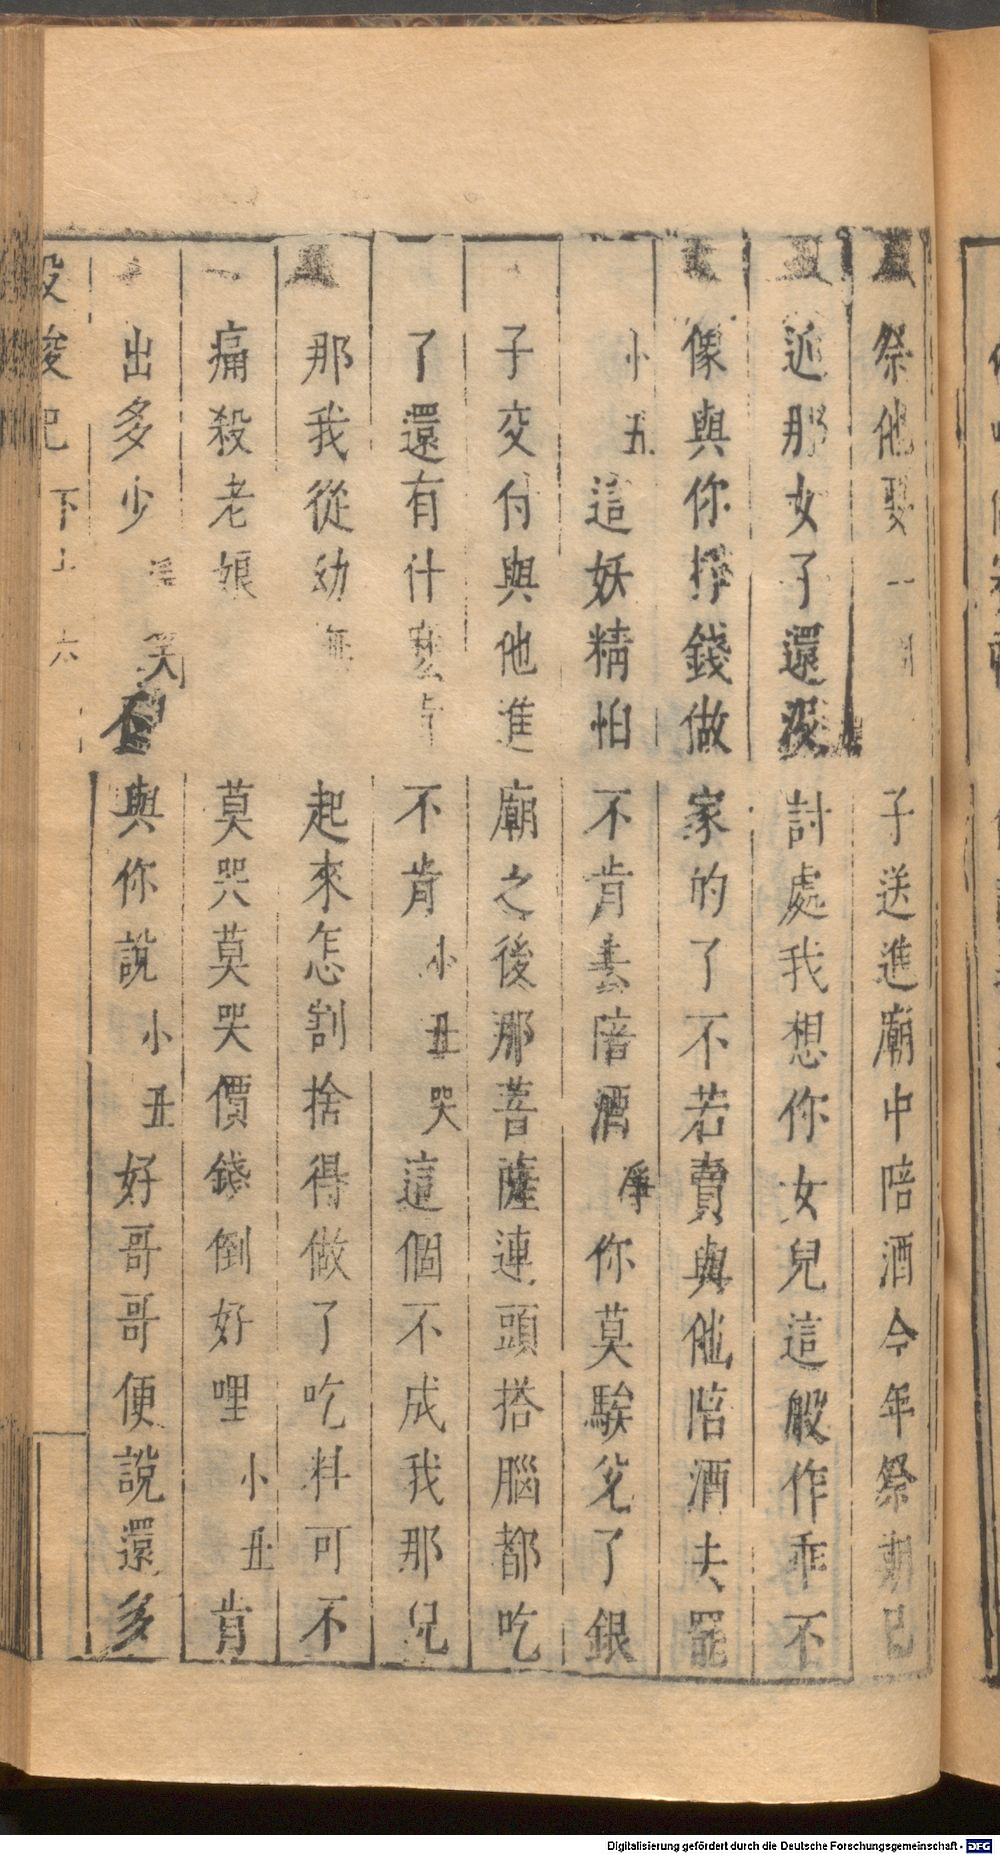 祭他娶一子送進廟中陪酒今年祭期已
近那女了還沒討處我想你女兒這般作乖不
像與你掙錢做家的了不若賣與他陪酒去罷
小五這妖精怕不肯去陪酒淨你莫騃兌了銀
子交付與他進廟之後那菩薩連頭搭腦都吃
了還有什麽不肯小丑哭這個不成我那兒
那我從幼起來怎割捨得做了吃料可不
痛殺老娘莫哭莫哭價錢倒好哩小丑肯
出多少淨笑不與你說小丑好哥哥便說還多
投梭記 下 六
Digitalisierung gefördert durch die Deutsche Forschungsgemeinschaft - DFG